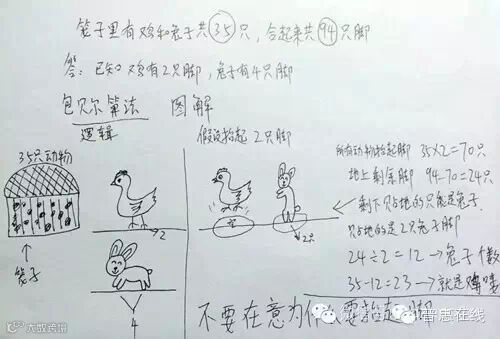 笼子里有鸡和兔子共35只，合起来共94只脚
答：已知鸡有2只脚，兔子有4只脚
包贝尔算法 图解
逻辑
假设抬起2只脚
35只动物
笼子
2
4
2只
所有动物抬起脚 35×2=70只
地上剩余脚 94-70=24只
剩下贴地的只能是兔子
贴地的是2只兔子脚
24÷2=12→兔子个数
35-12=23→就是鸡喽
不要在意为什么要抬起脚
大数跨境
普忠在线